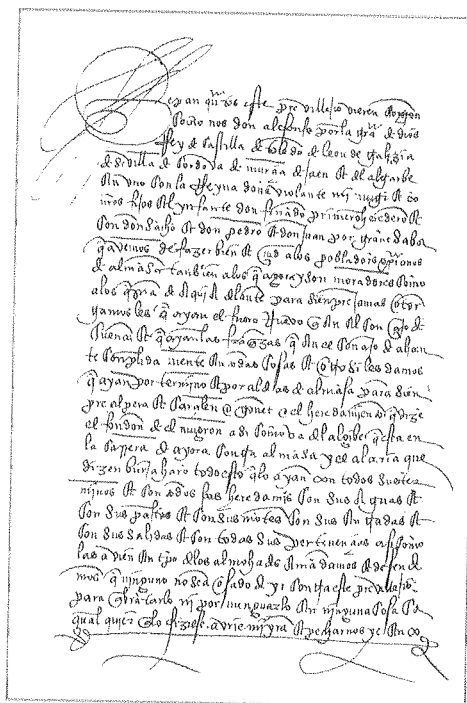 Sepan quantos este previllejo vieren e oyeren
Como nos don alfonso por la gra de dios
Rey de castilla de toledo de leon de galizia
de sevilla de cordova de murcia de jaen et del algarbe
En uno con la Reyna doña violante mi muger et co
nros fijos el ynfante don ferrando primero heredero et
con don sancho et don pedro et don juan por grant sabor
q avemos de fazer bien et md a los pobladores xpianos
de almansa tanbien a los q agora y son moradores como
a los q seran de aqui adelante para sienpre jamas otor
gamosles q ayan el fuero
buena et q ayan las franqzas q an el conçejo de alican
te conplida mente en todas cosas et otrosi les damos
q ayan por termino et por aldeas de almansa para sien
pre alpera et carcelen e bonet e el heredamiento q dize
el fondon de el mugron asi como va el algibe q esta en
la carrera de ayora contra almansa y el alcaria que
dizen burjaharo todo esto q lo ayan con todos sus ter
minos et con todos sus heredamios con sus aguas et
con sus pastos et con sus montes con sus entradas et
con sus salidas et con todas sus pertenençias asi como
las avien en tpo de los almohades et mandamos et defende
mos q ninguno no sea osado de yr contra este previllejo
para qbrantarlo ni por menguarlo en ninguna cosa ca
qual quier q lo fiziese avrie mi yra et pecharnos ye en co